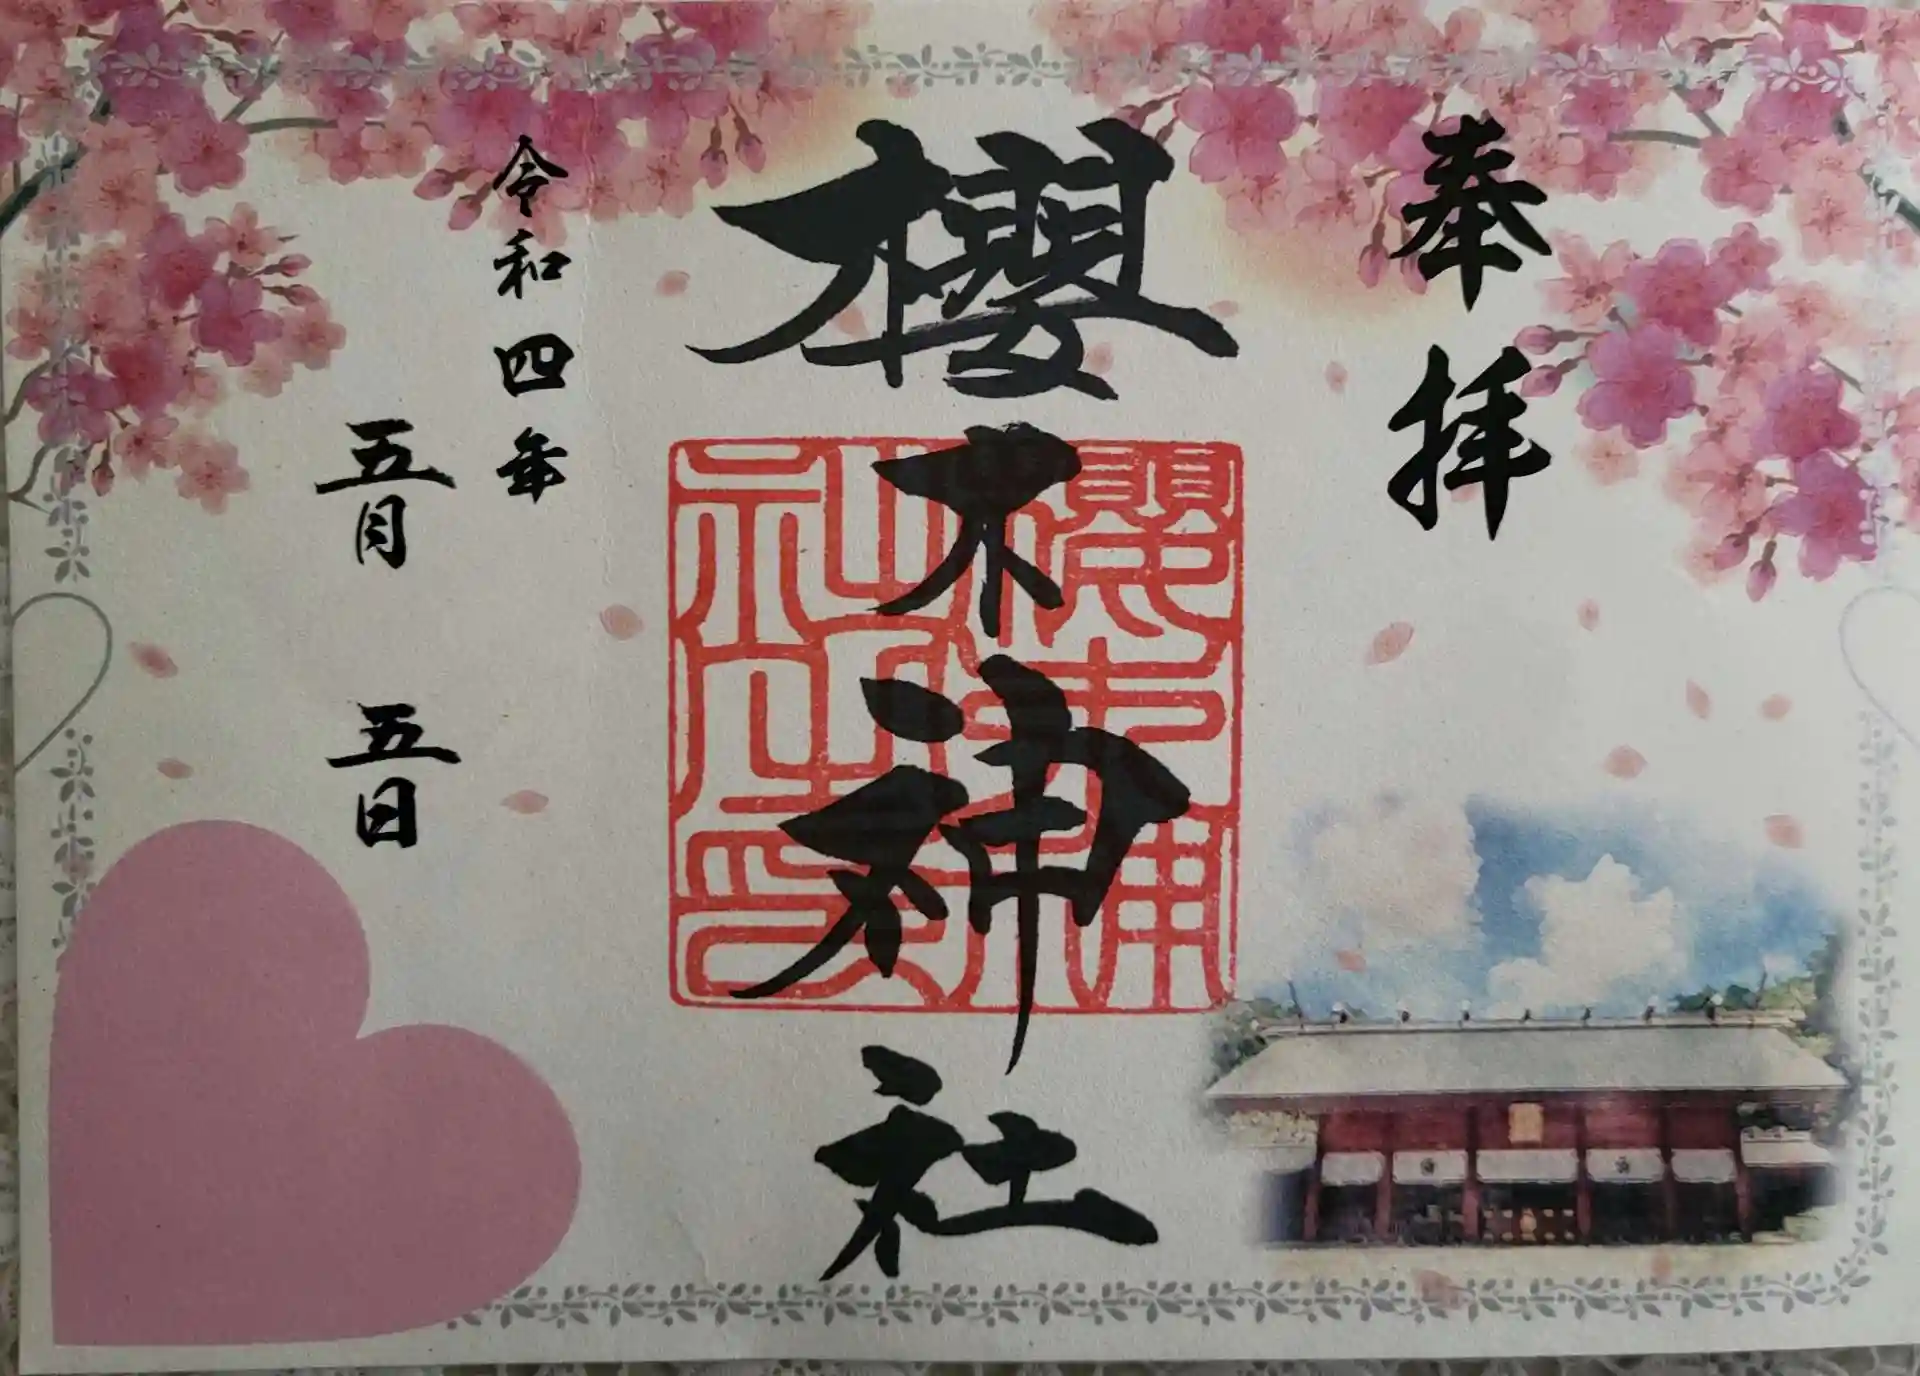 奉拝
櫻木神社
櫻木神社之印
令和四年
五月 五日